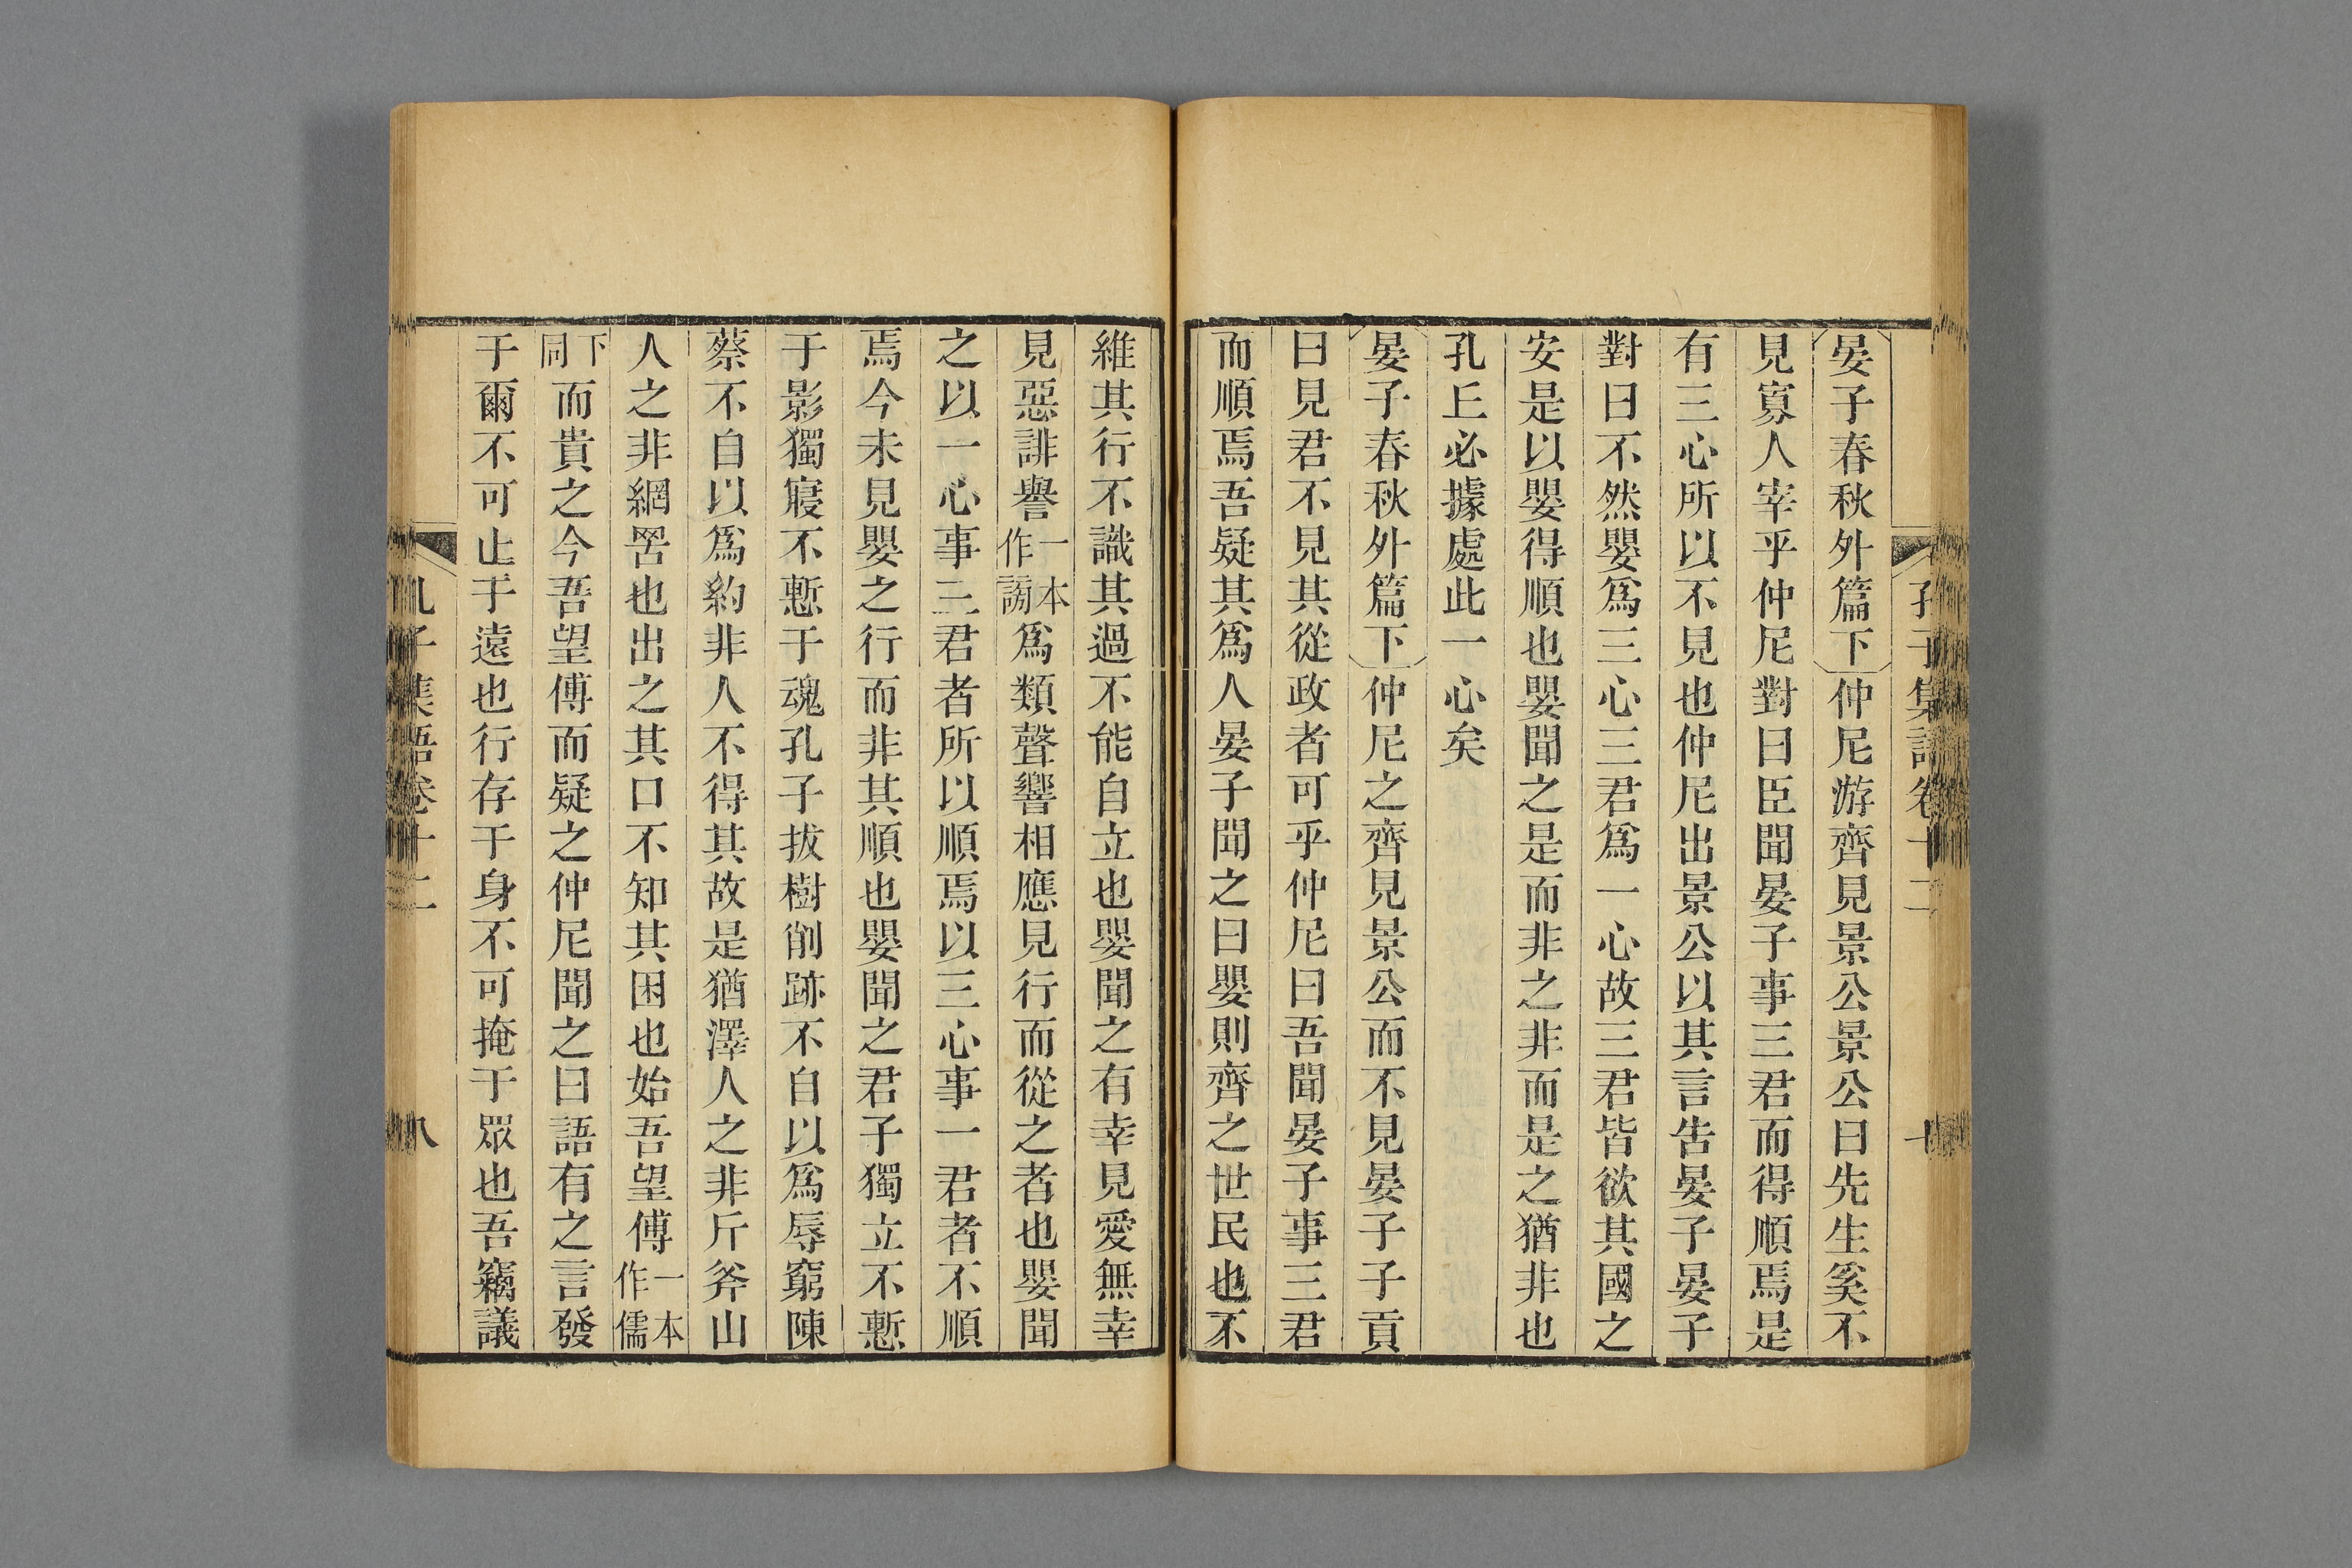 晏子春秋外篇下仲尼游齊見景公景公曰先生奚不
見寡人宰乎仲尼對曰臣聞晏子事三君而得順焉是
有三心所以不見也仲尼出景公以其言告晏子晏子
對曰不然嬰爲三心三君爲一心故三君皆欲其國之
安是以嬰得順也嬰聞之是而非之非而是之猶非也
孔丘必據處此一心矣
晏子春秋外篇下仲尼之齊見景公而不見晏子子貢
曰見君不見其從政者可乎仲尼曰吾聞晏子事三君
而順焉吾疑其爲人晏子聞之曰嬰則齊之世民也不
維其行不識其過不能自立也嬰聞之有幸見愛無幸
見惡誹譽一本作謗爲類聲響相應見行而從之者也嬰聞
之以一心事三君者所以順焉以三心事一君者不順
焉今未見嬰之行而非其順也嬰聞之君子獨立不慙
于影獨寢不慙于魂孔子拔樹削跡不自以爲辱窮陳
蔡不自以爲約非人不得其故是猶澤人之非斤斧山
人之非網罟也出之其口不知其困也始吾望傅一本作儒
下同而貴之今吾望傅而疑之仲尼聞之曰語有之言發
于爾不可止于遠也行存于身不可掩于眾也吾竊議
孔子集語卷十二
八